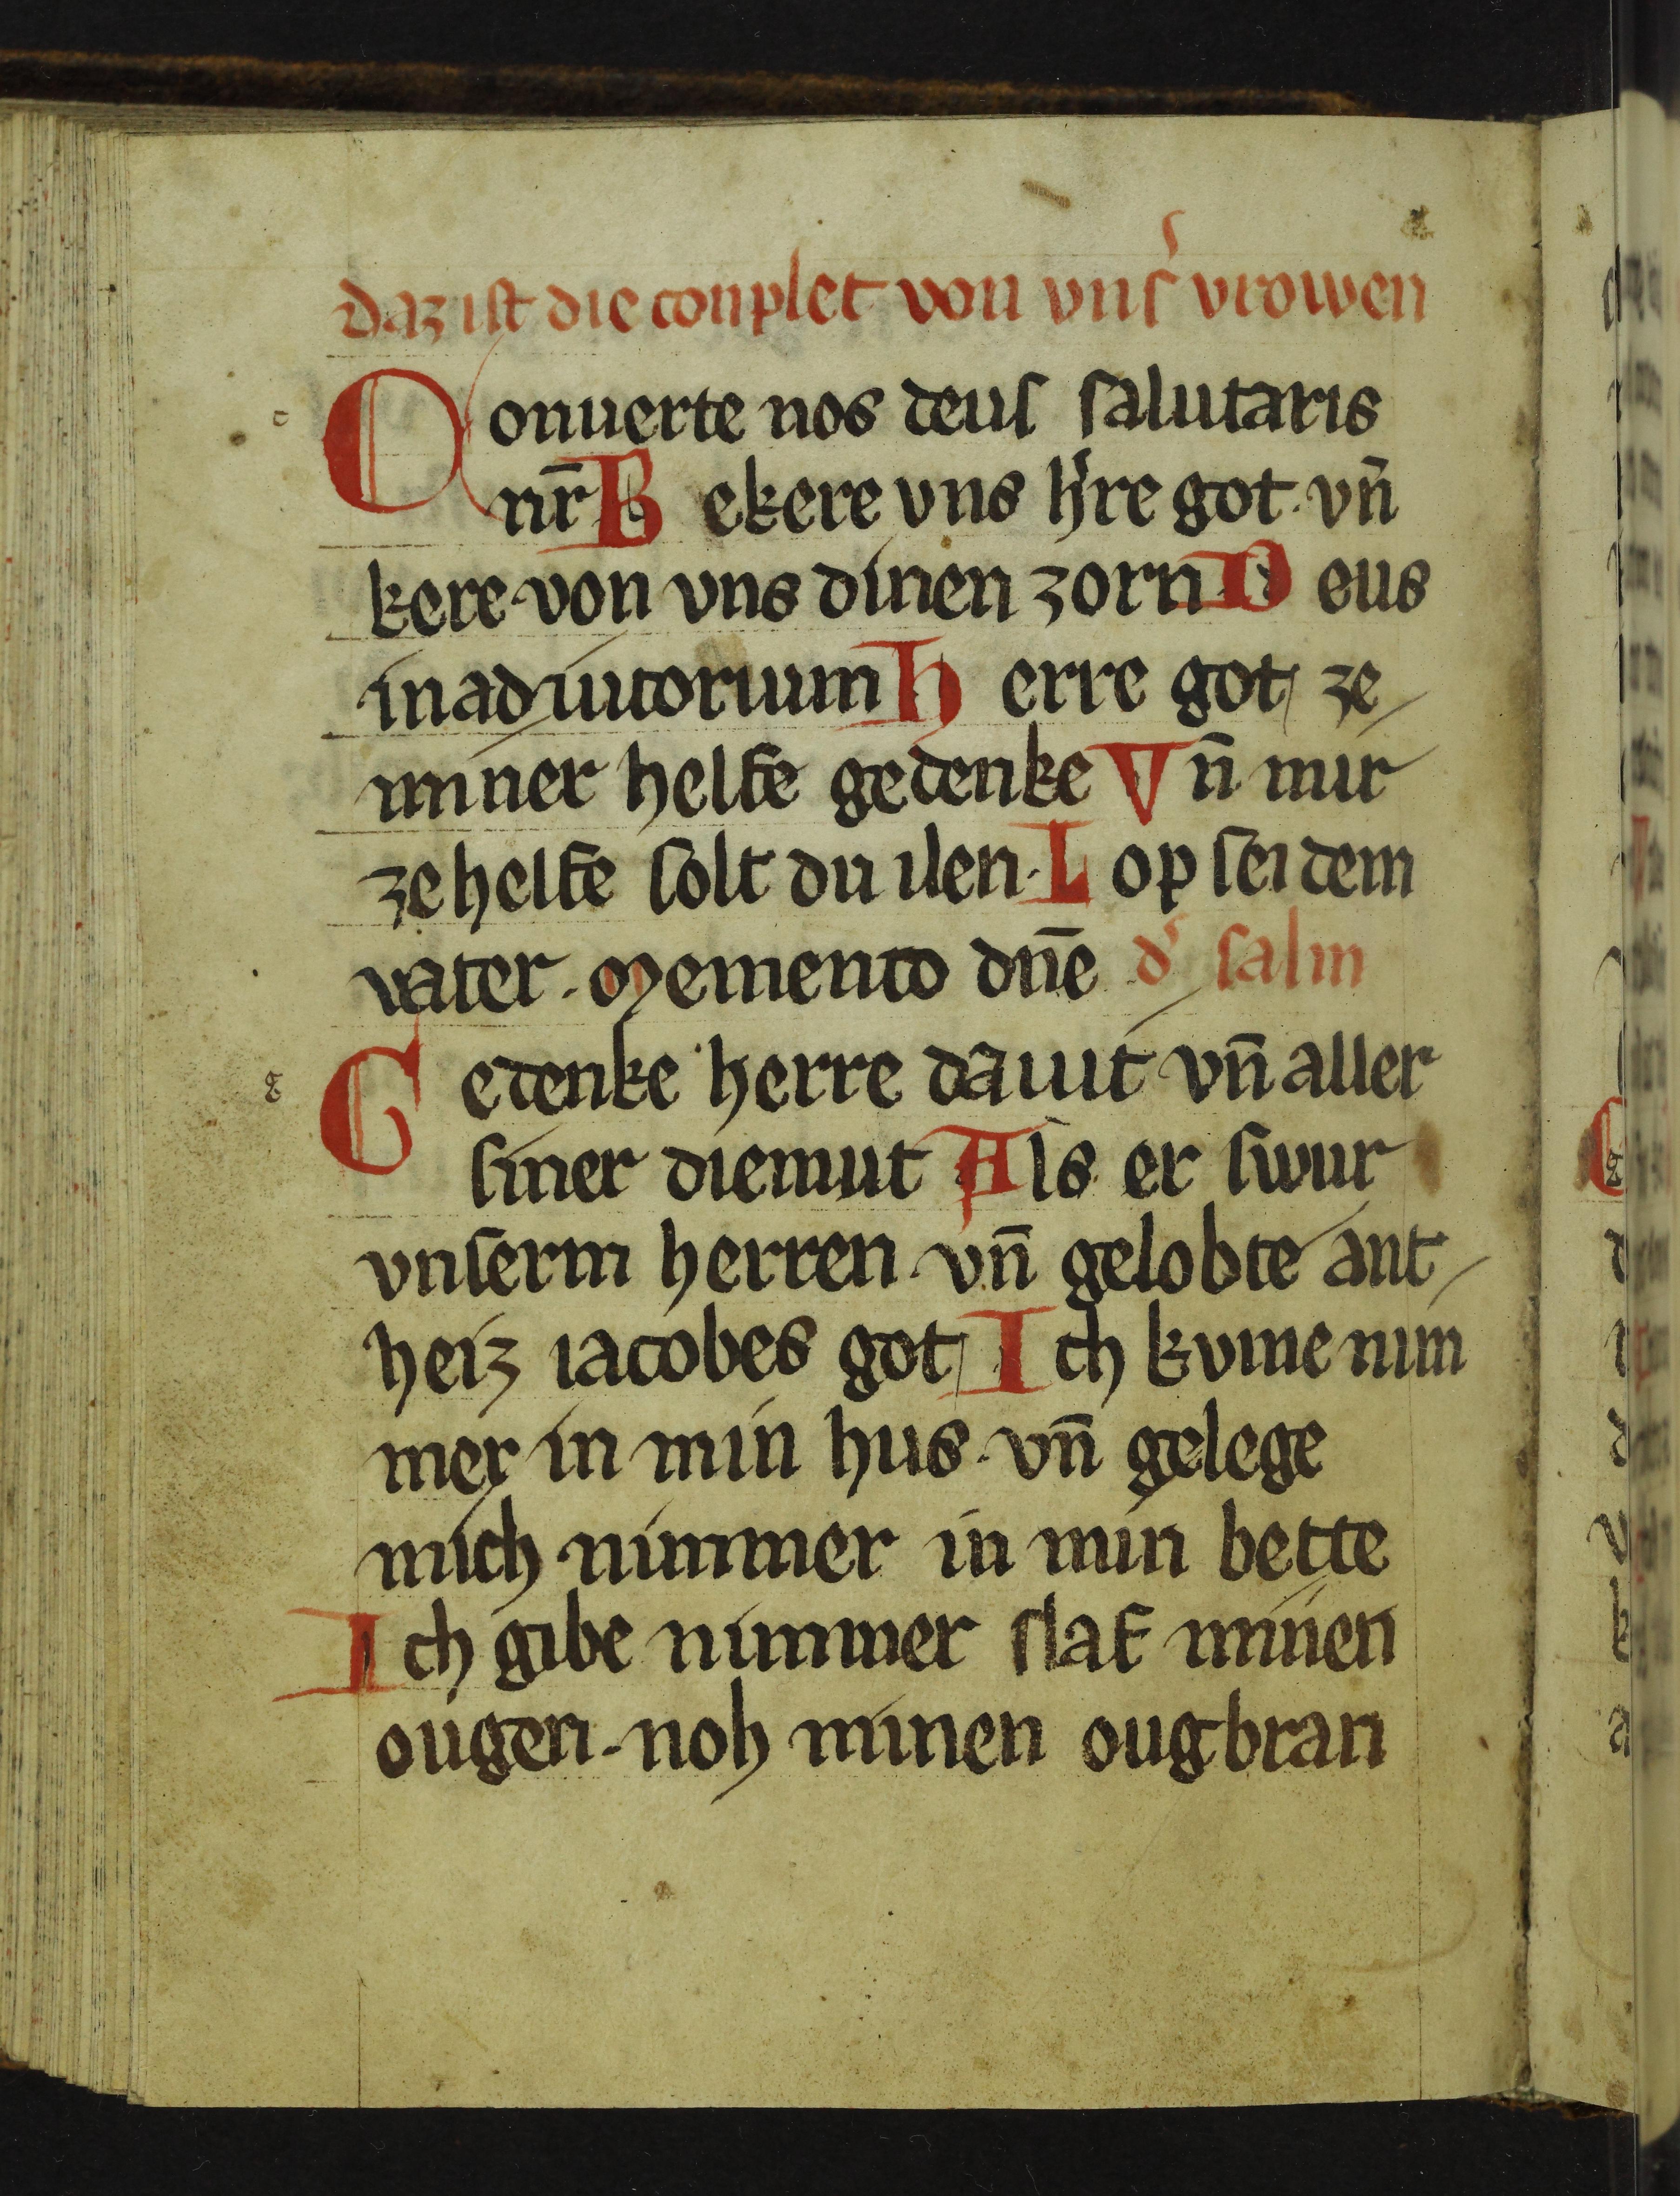 daz ist die conplet von vns͛ vrowen
Conuerte nos deus salutaris
nr̄ Bekere vns h͛re got. vn̄
kere von vns dinen zorn Deus
in adiutorium Herre got ze
miner helfe gedenke Vn̄ mir
ze helfe solt du ilen. Lop sei dem
vater. Memento dn̄e d͛ salm
Gedenke herre dauit vn̄ aller
siner diemut Als er swur
vnserm herren. vn̄ gelobte ant-
heiz iacobes got Ich kvme nim
mer in min hus. vn̄ gelege
mich nimmer in min bette
Ich gibe nimmer slaf minen
ougen. noh minen ougbran